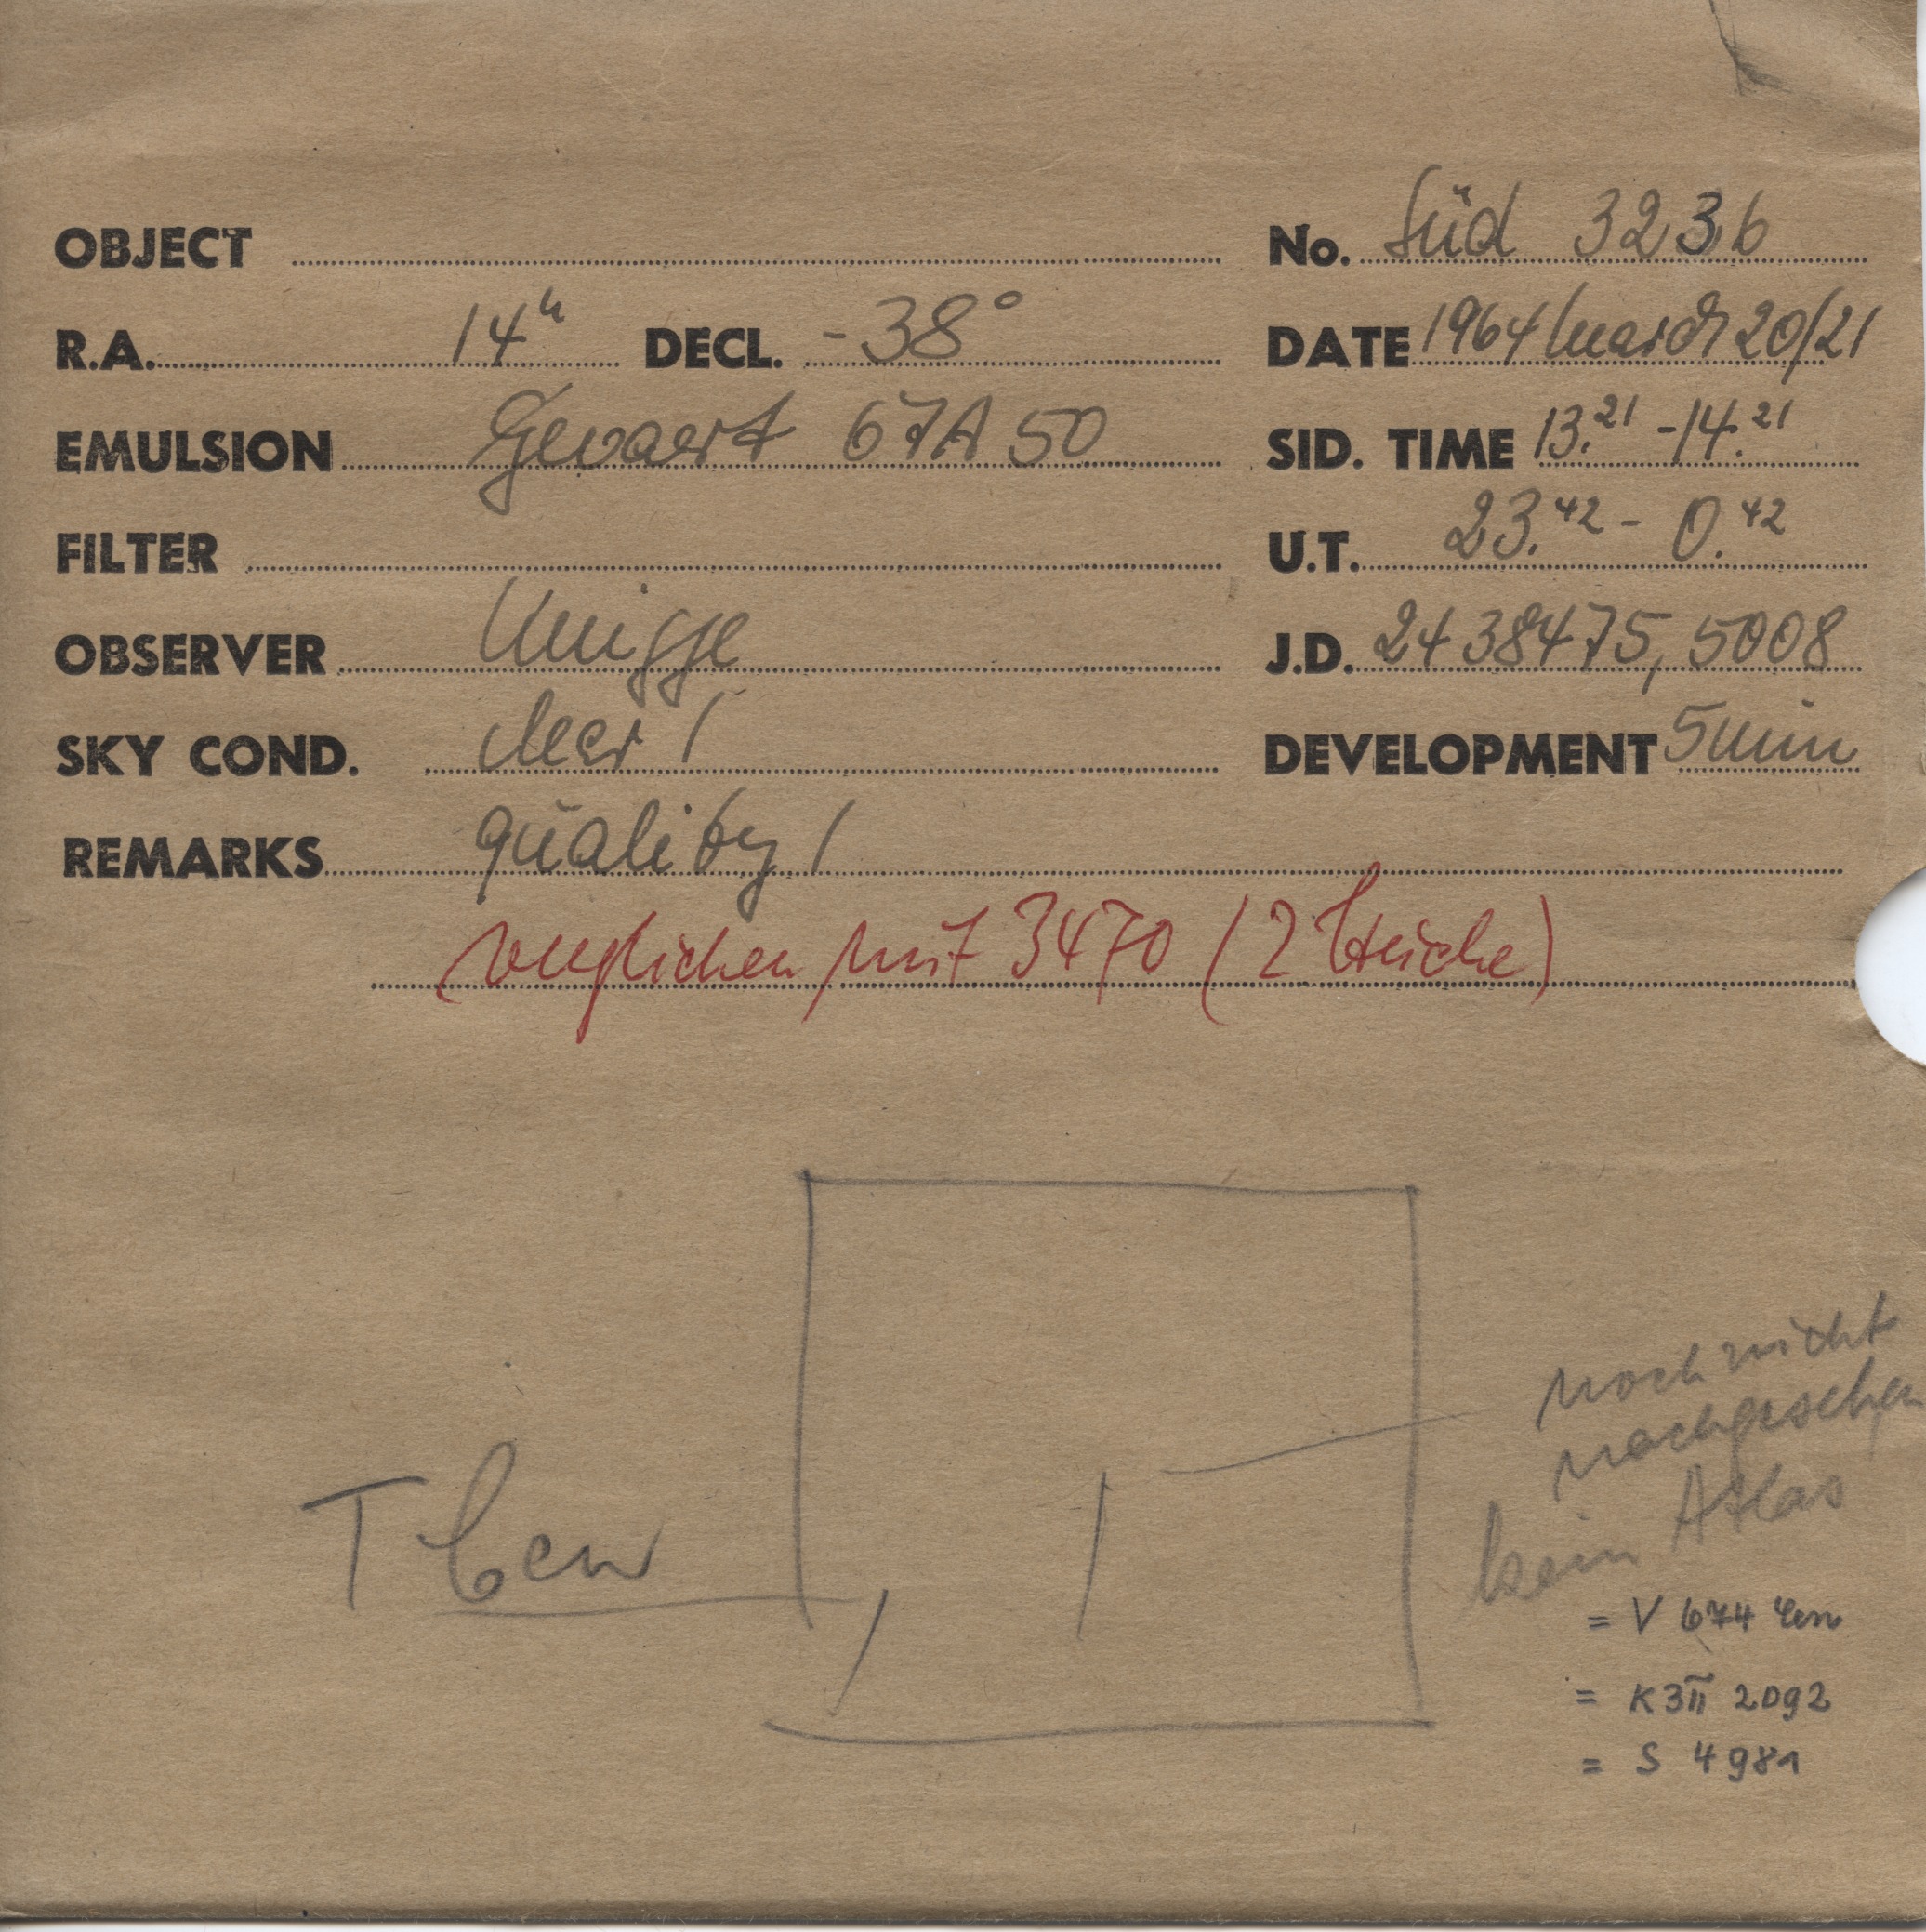 OBJECT No. Süd 3236
R.A. 14h DECL. -38°  DATE 1964 March 20/21
EMULSION Gevaert 67A50 SID. TIME 13.21 - 14.21
FILTER U.T. 23.42 - 0.42
OBSERVER Knigge J.D. 2438475,5008
SKY COND. clear 1 DEVELOPMENT 5min
REMARKS quality 1
verglichen mit 3470 (2 Striche)
noch nicht
nachgesehen
kein Atlas
T Cen
= V 674 Cen
= K3π 2092
= S 4981